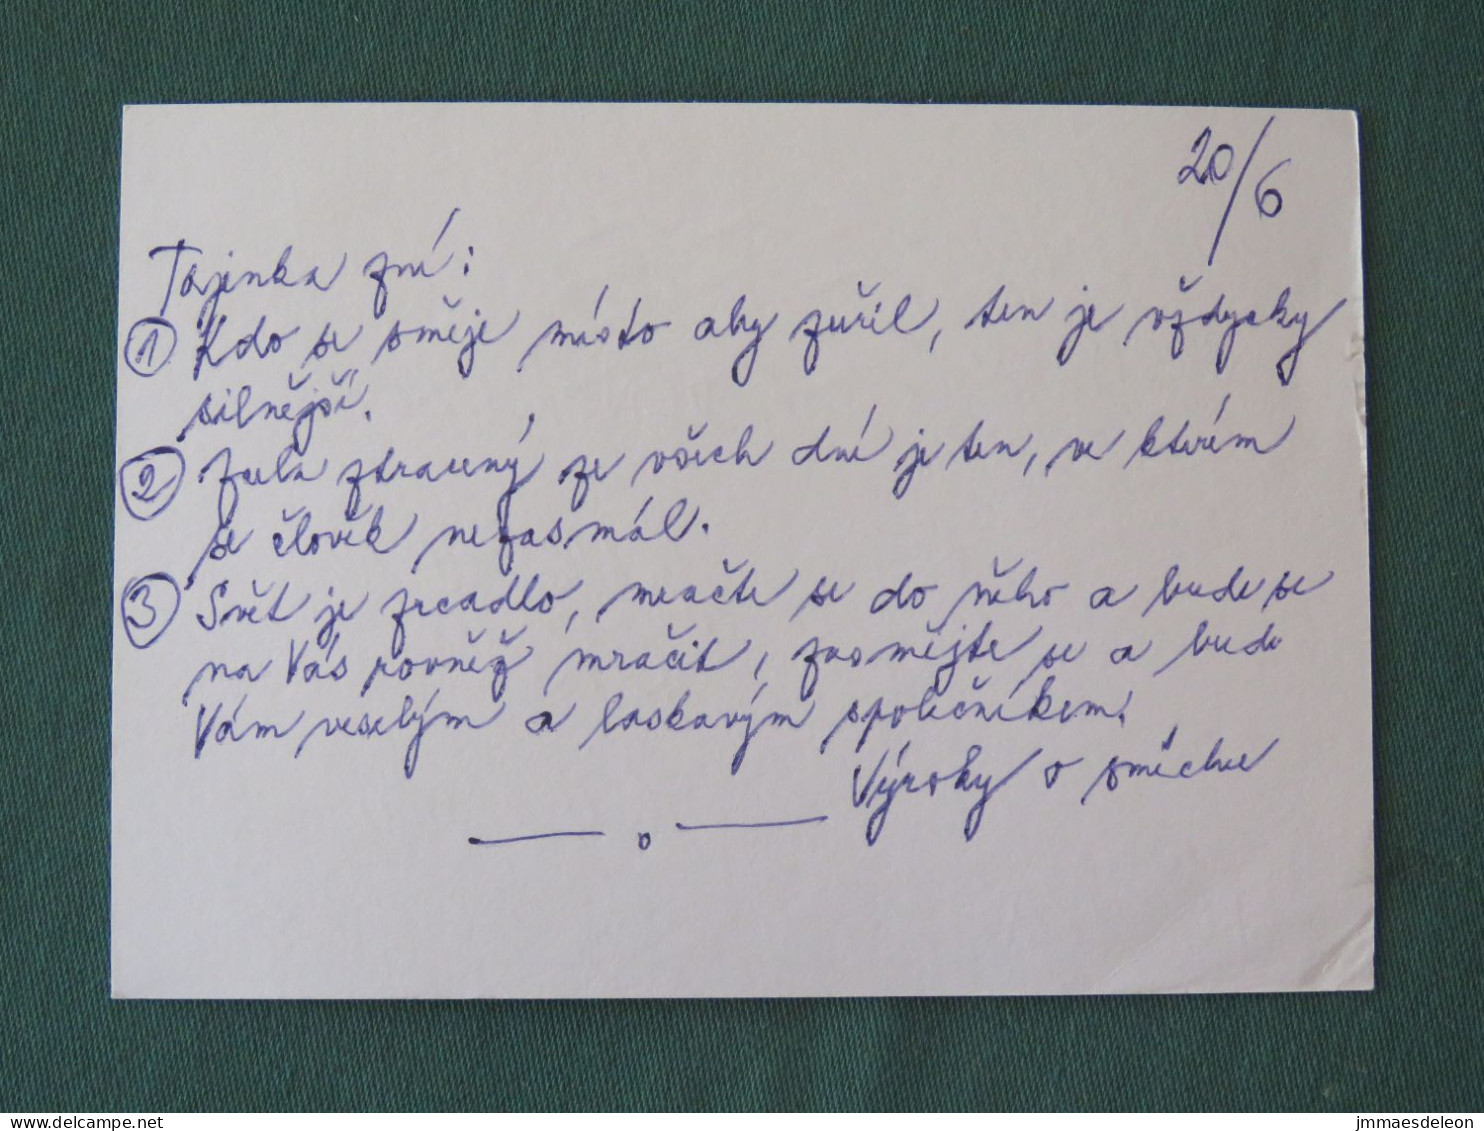 20/6
Tajenka zní:
1 Kdo se směje místo aby zuřil, ten je vždycky
silnější.
2 Zcela ztracený ze všech dní je ten, ve kterém
se člověk nezasmál.
3 Svět je zrcadlo, mračte se do něho a bude se
na Vás rovněž mračit, zasmějte se a bude
Vám veselým a laskavým společníkem.
Výroky o smíchu
— o —
www.delcampe.net
jmmaesdeleon